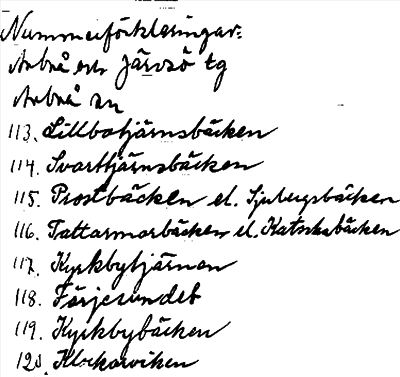 Nummerförklaringar:
Arbrå och Järvsö tg
Arbrå sn
113. Lillbotjärnsbäcken
114. Svarttjärnsbäcken
115. Prostbäcken el. Sjubergsbäcken
116. Tattarmorbäcken el.
117. Kyrkbytjärnen
118. Färjesundet
119. Kyrkbybäcken
120. Klockarviken